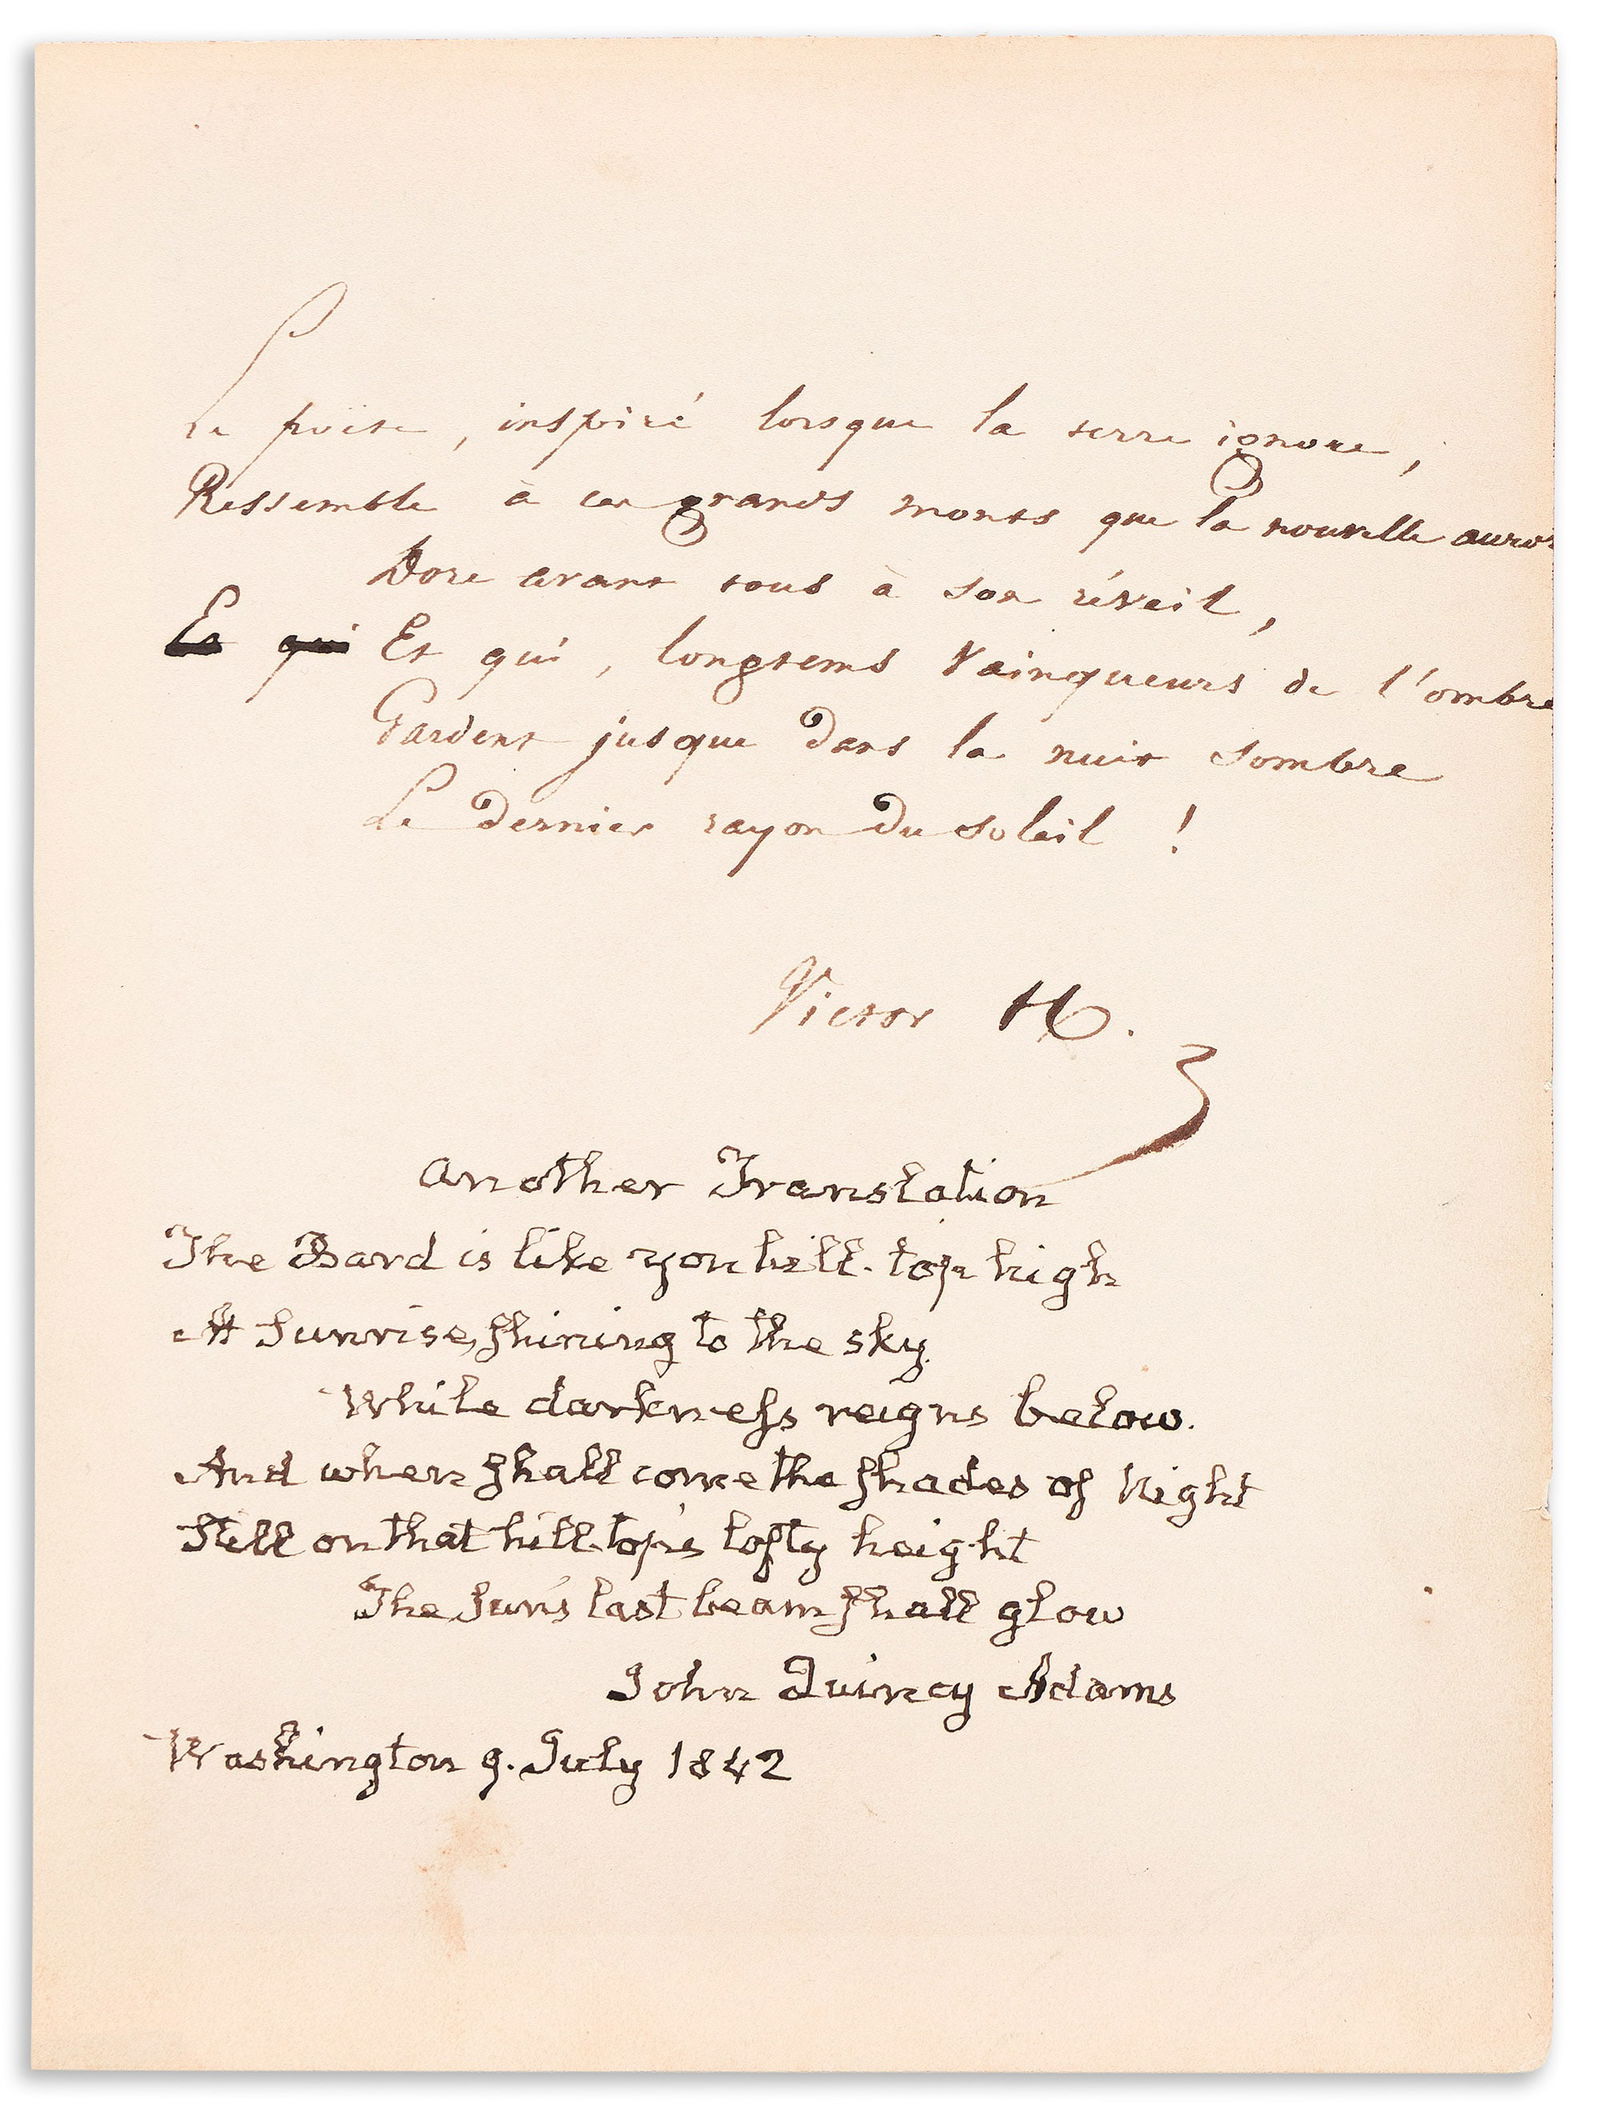 Le poëte, inspiré lorsque la terre ignore,
Ressemble à ces grands monts que la nouvelle auro
Dore avant tous à son réveil,
Et qui Et qui, longtems vainqueurs de l'ombre
Gardent jusque dans la nuit sombre
Le dernier rayon du soleil !
Victor H.
Another Translation
The Bard is like yon hill-top high
At Sunrise, shining to the sky.
While darkness reigns below.
And when shall come the shades of Night
Still on that hill-top's lofty height
The Sun's last beam shall glow
John Quincy Adams
Washington 9. July 1842